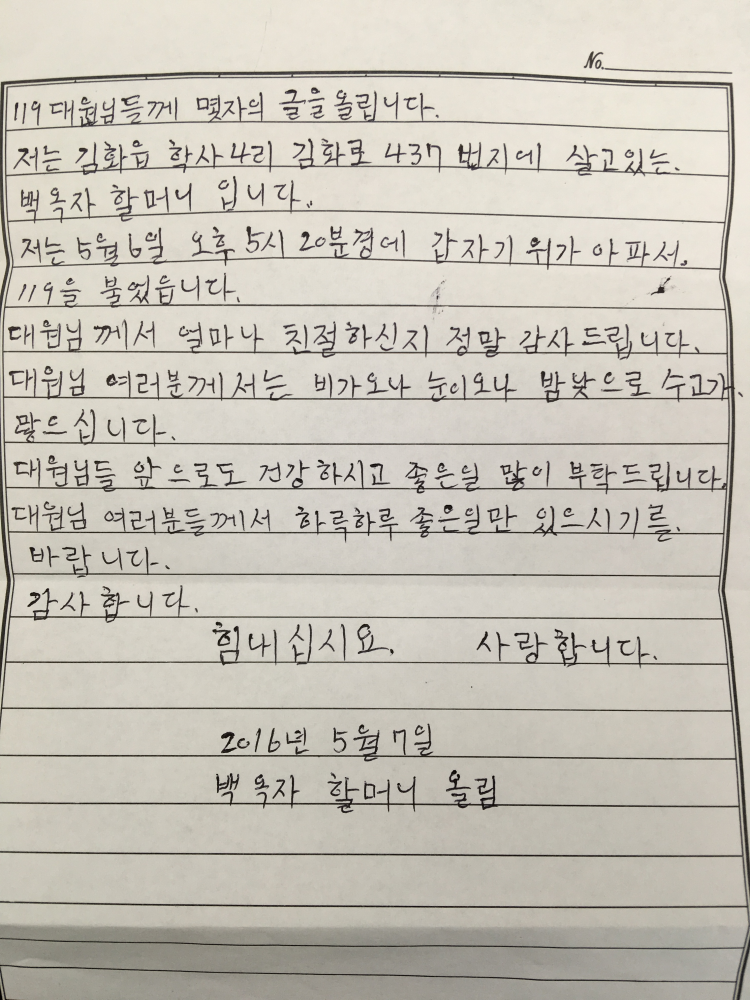 No.
119 대원님들께 몇자의 글을 올립니다.
저는 김화읍 학사4리 김화로 437 번지에 살고있는.
백옥자 할머니 입니다.
저는 5월 6일 오후 5시 20분경에 갑자기 위가 아파서.
119을 불었읍니다.
대원님께서 얼마나 친절하신지 정말 감사드립니다.
대원님 여러분께서는 비가오나 눈이오나 밤낮으로 수고가.
많으십니다.
대원님들 앞으로도 건강하시고 좋은일 많이 부탁드립니다.
대원님 여러분들께서 하륵하루 좋은일만 있으시기를.
바랍니다.
감사합니다.
힘내십시요. 사랑합니다.
2016년 5월 7일
백옥자 할머니 올림